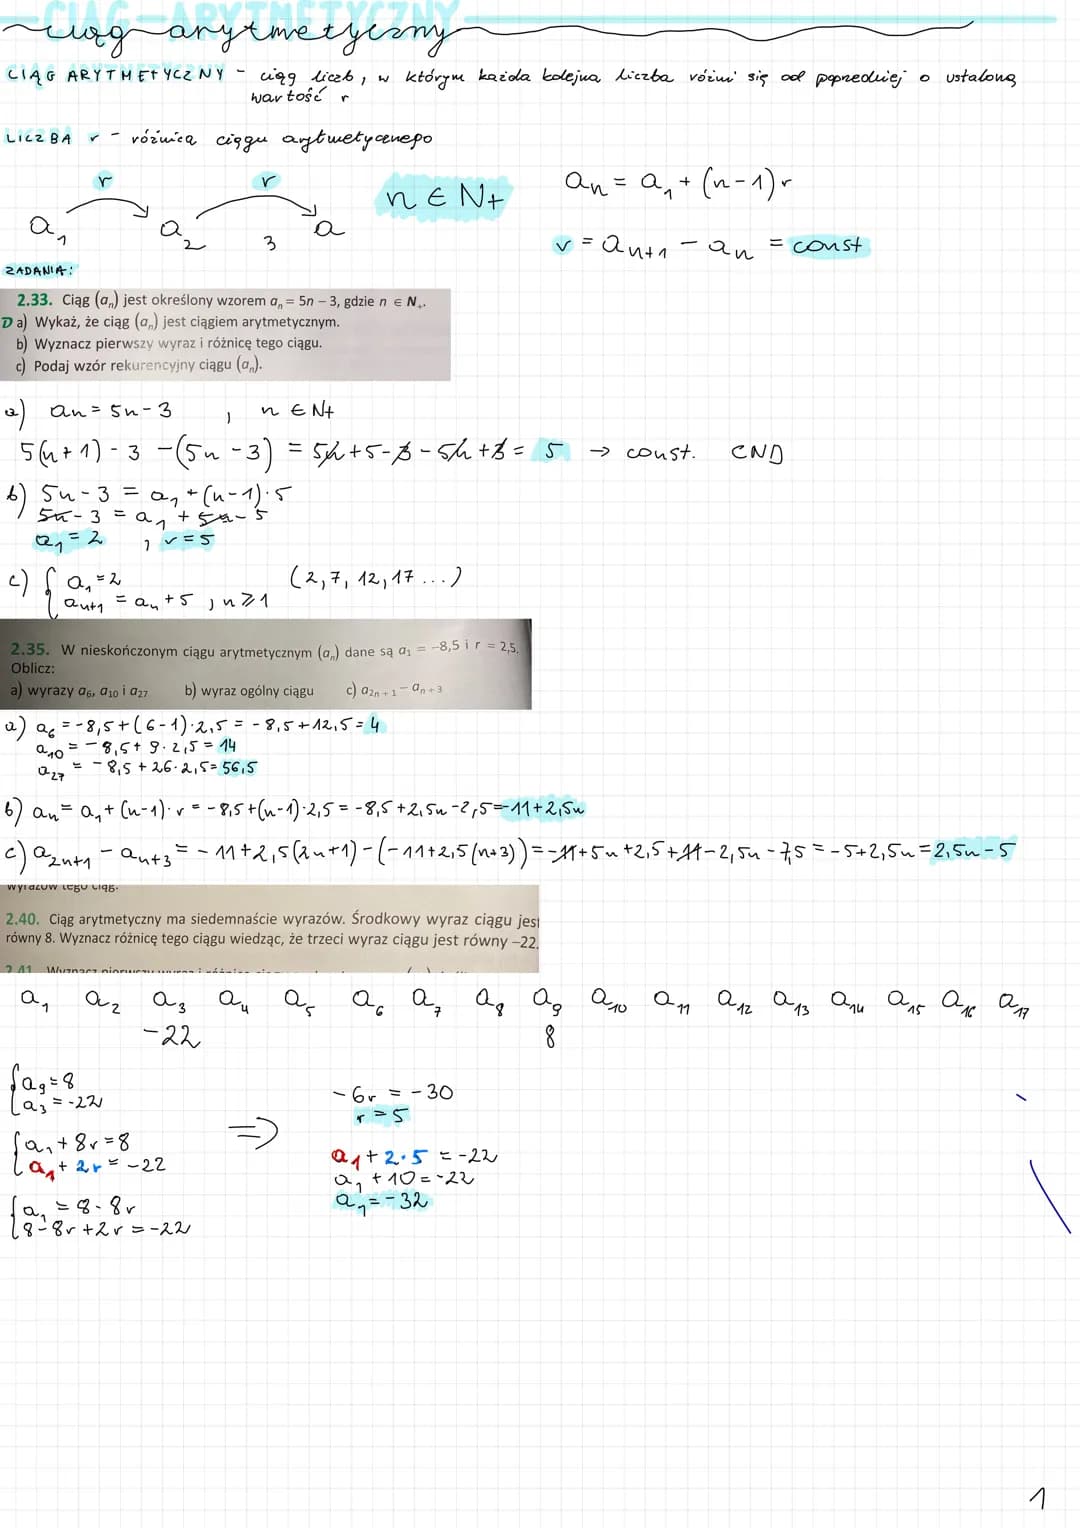 CIĄG ARYTMETYCZNY
ciąg arytmetyczny
CIĄG ARYTMETYCZNY - ciąg liczb, w którym każda kolejna liczba różni się od poprzedniej o ustaloną
wartość r
LICZBA r - różnica ciągu arytmetycznego
r r
n ∈ N+
aₙ = a₁ + (n-1)r
a₁ a₂ a 3
r = aₙ₊₁ - aₙ = const
ZADANIA:
2.33. Ciąg (aₙ) jest określony wzorem aₙ = 5n – 3, gdzie n ∈ N₊.
D a) Wykaż, że ciąg (aₙ) jest ciągiem arytmetycznym.
b) Wyznacz pierwszy wyraz i różnicę tego ciągu.
c) Podaj wzór rekurencyjny ciągu (aₙ).
a) an = 5n-3 , n ∈ N+
5(n+1)-3 -(5n-3) = 5n+5-3-5n+3 = 5 → const. CND
b) 5n-3 = a₁+(n-1)·5
5n-3 = a₁ + 5n-5
a₁ = 2 , r = 5
c) { a₁ = 2 (2, 7, 12, 17 ...)
aₙ₊₁ = aₙ + 5 , n ⩾ 1
2.35. W nieskończonym ciągu arytmetycznym (aₙ) dane są a₁ = –8,5 i r = 2,5.
Oblicz:
a) wyrazy a₆, a₁₀ i a₂₇ b) wyraz ogólny ciągu c) a₂ₙ₊₁ – aₙ₊₃
a) a₆ = -8,5+(6-1)·2,5 = -8,5+12,5 = 4
a₁₀ = -8,5+9·2,5 = 14
a₂₇ = -8,5+26·2,5 = 56,5
b) aₙ = a₁+(n-1)·r = -8,5+(n-1)·2,5 = -8,5+2,5n-2,5 = -11+2,5n
c) a₂ₙ₊₁ - aₙ₊₃ = -11+2,5(2n+1)-(-11+2,5(n+3)) = -11+5n+2,5+11-2,5n-7,5 = -5+2,5n = 2,5n-5
wyrazów tego ciąg.
2.40. Ciąg arytmetyczny ma siedemnaście wyrazów. Środkowy wyraz ciągu jest
równy 8. Wyznacz różnicę tego ciągu wiedząc, że trzeci wyraz ciągu jest równy –22.
2.41 Wyznacz
a₁ a₂ a₃ a₄ a₅ a₆ a₇ a₈ a₉ a₁₀ a₁₁ a₁₂ a₁₃ a₁₄ a₁₅ a₁₆ a₁₇
-22 8
{ a₉ = 8
a₃ = -22
{ a₁ + 8r = 8
a₁ + 2r = -22
{ a₁ = 8-8r
8-8r+2r = -22
⇒
-6r = -30
r = 5
a₁ + 2·5 = -22
a₁ + 10 = -22
a₁ = -32
1